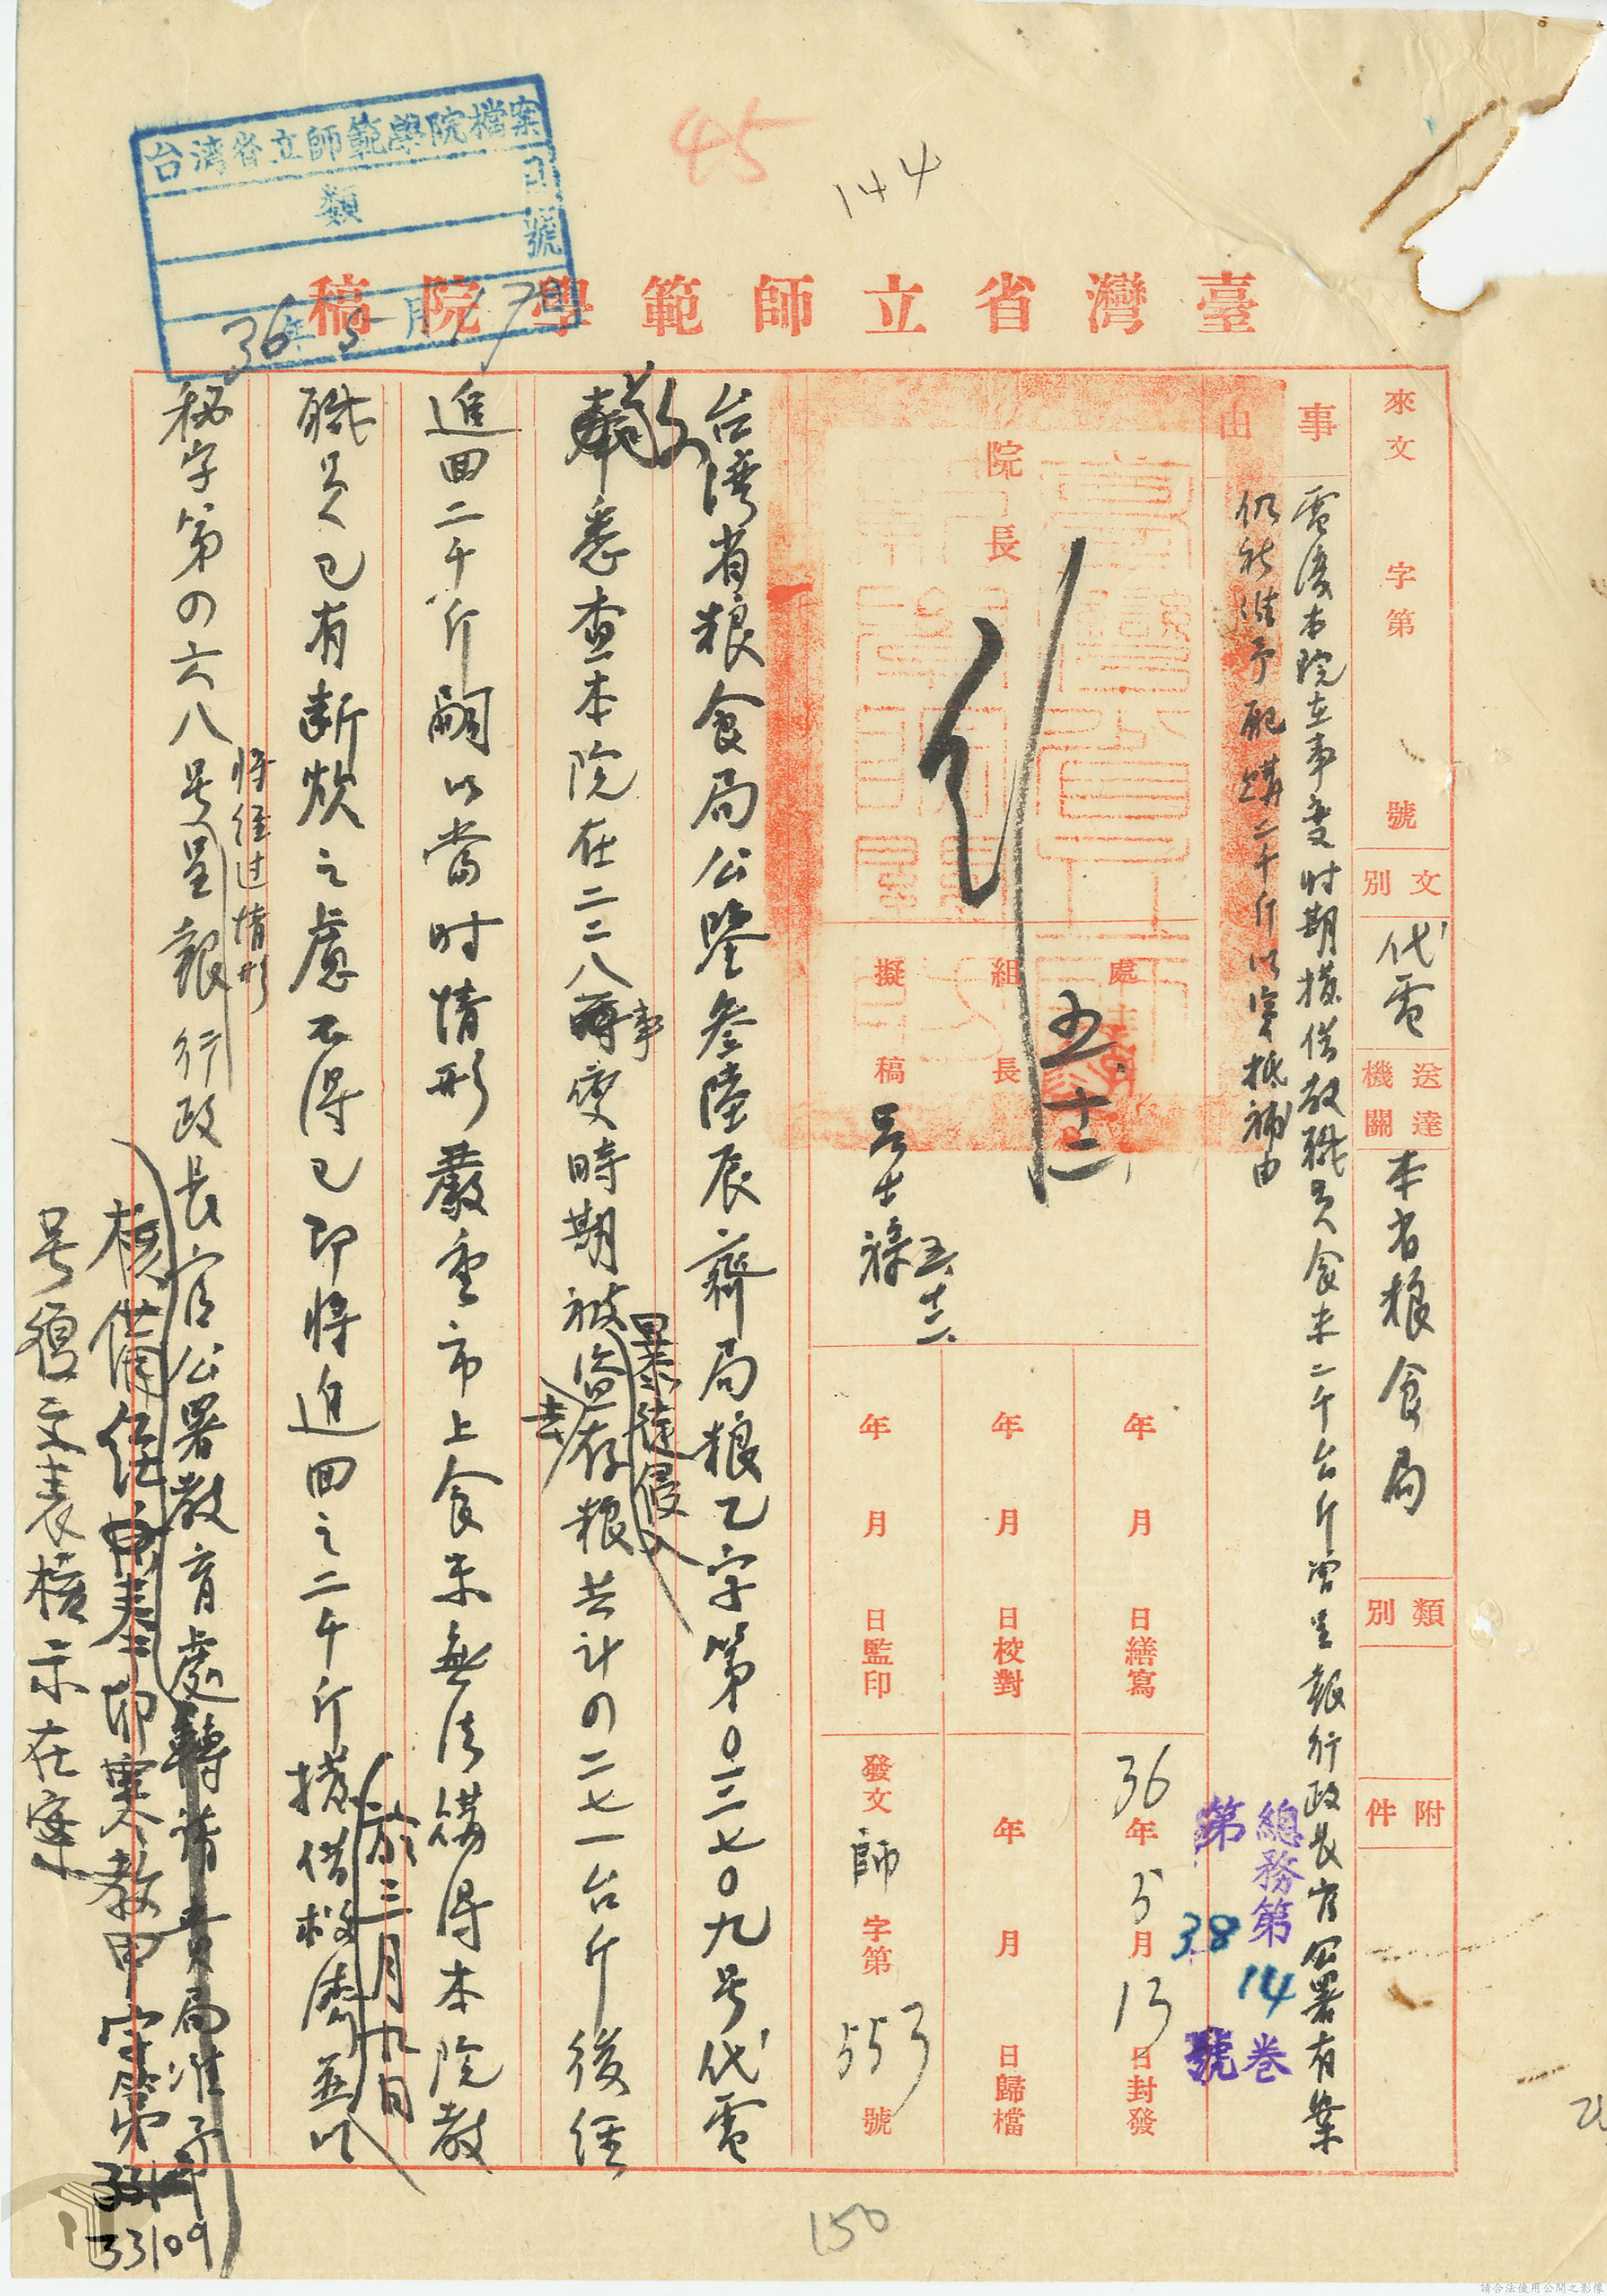 45
144
台湾省立師範學院檔案
類
号
號
36年5月17日
臺灣省立師範學院稿
來文
字第
號
文別
代電
送達機關
本省粮食局
類別
附件
事由
電復本院在事變时期撥借教職員食米二千台斤曾呈報行政長官公署有案
仍祈准予配購二千斤以穼抵補由
院長
處
組長
擬稿
五、十二、
五、十二、
年月日繕寫
年月日校對
年月日監印
36年5月13日封發
年月日歸檔
發文師字第553號
總務第14卷
第38號
台湾省粮食局公鑒叁陸辰齊局粮乙字第0三七0九号代電
敬悉查本院在二二八事變時期被
暴徒侵入
盜去存粮共計の二七一台斤後經
追回二千斤嗣以當时情形嚴重市上食米無法購得本院教
職員已有断炊之慮不得已即将追回之二千斤
於三月九日
撥借救濟並以
秘字第の六八号
将經过情形
呈報行政長官公署教育處轉請貴局准予
核備
寒教甲字第
33109
号復文表核示在案
150
請合法使用公開之影像